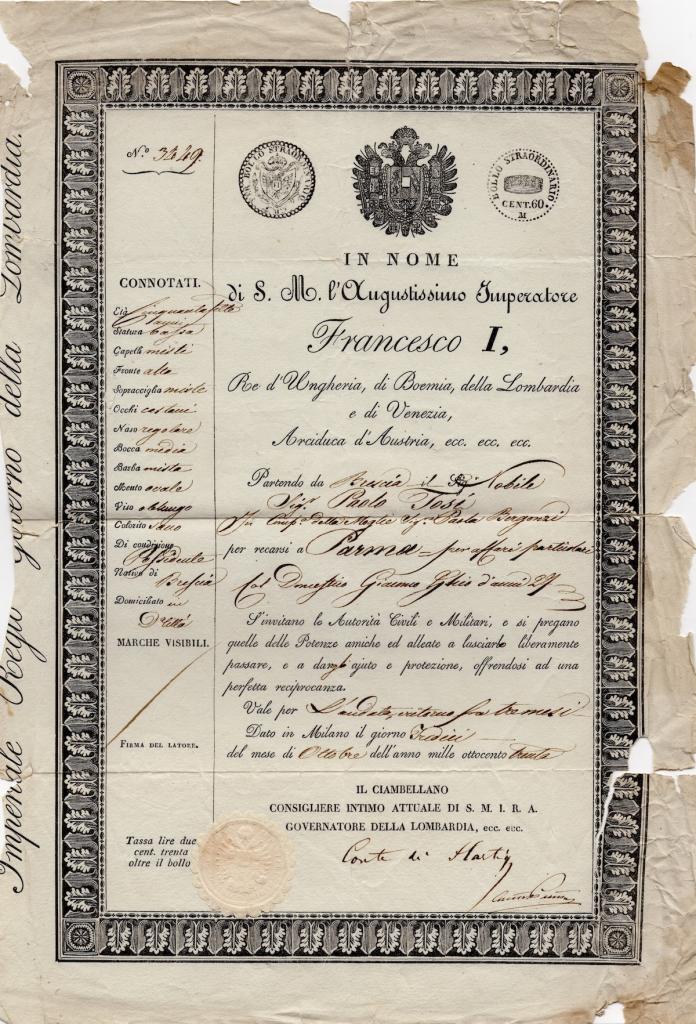 Imperiale Regio Governo della Lombardia.
N.º 3449.
BOLLO STRAORDINARIO
BOLLO STRAORDINARIO
CENT. 60.
M
IN NOME
di S. M. l'Augustissimo Imperatore
Francesco I,
Re d'Ungheria, di Boemia, della Lombardia
e di Venezia,
Arciduca d'Austria, ecc. ecc. ecc.
CONNOTATI.
Età Cinquanta
Statura bassa
Capelli misti
Fronte alta
Sopracciglia miste
Occhi castani
Naso regolare
Bocca media
Barba mista
Mento ovale
Viso oblungo
Colorito sano
Di condizione
Possidente
Nativo di
Brescia
Domiciliato in
D.a Città
MARCHE VISIBILI.
FIRMA DEL LATORE.
Tassa lire due
cent. trenta
oltre il bollo
Partendo da Brescia il Nobile
Sig.r Paolo Tosi
della Moglie Sig.a Paola Bergonzi
per recarsi a Parma = per affari particolari
Col Domestico Giacomo d'anni 27
S'invitano le Autorità Civili e Militari, e si pregano
quelle delle Potenze amiche ed alleate a lasciarlo liberamente
passare, e a dargli ajuto e protezione, offrendosi ad una
perfetta reciprocanza.
Vale per L'andata, e ritorno fra tre mesi
Dato in Milano il giorno Tredici
del mese di Ottobre dell'anno mille ottocento trenta
IL CIAMBELLANO
CONSIGLIERE INTIMO ATTUALE DI S. M. I. R. A.
GOVERNATORE DELLA LOMBARDIA, ECC. ECC.
Conte di Hartig